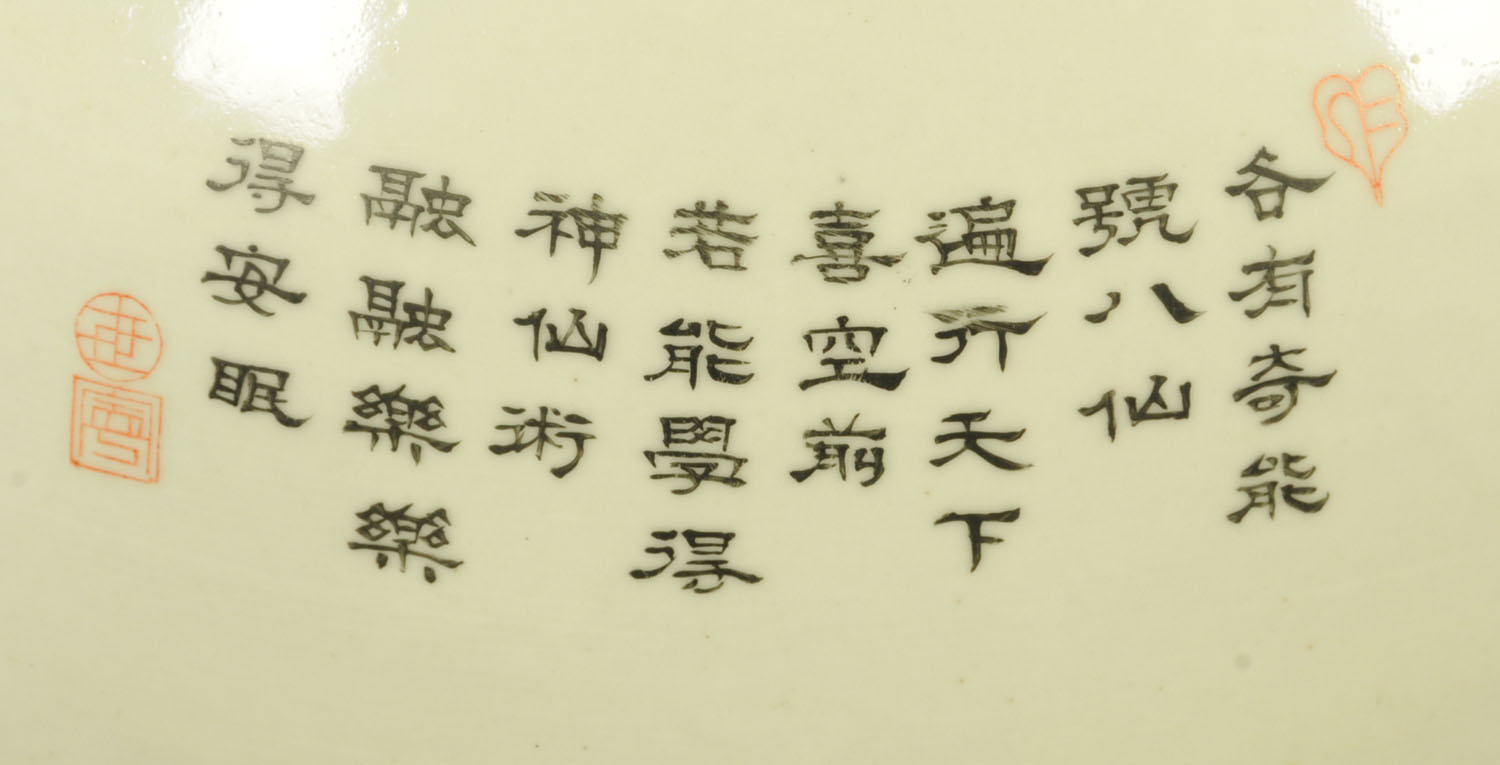 各有奇能
號八仙
遍行天下
喜空前
若能學得
神仙術
融融樂樂
得安眠